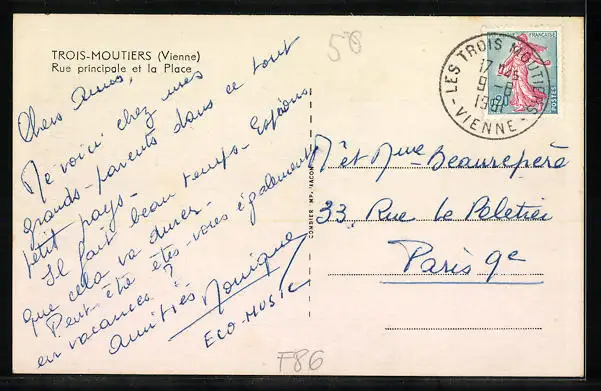 TROIS-MOUTIERS (Vienne)
Rue principale et la Place
58
Chers amis,
Me voici chez mes
grands-parents dans ce tout
petit pays -
Il fait beau temps - Espérons
que cela va durer -
Peut-être êtes-vous également
en vacances ?
Amitiés Monique
ECO-MUSIC
COMBIER IMP. MACON
LES TROIS MOUTIERS
17 H 45
9-8
1961
- VIENNE -
FRANÇAISE
POSTES
M et Mme Beaurepère
33 Rue Le Peletier
Paris 9e
F86